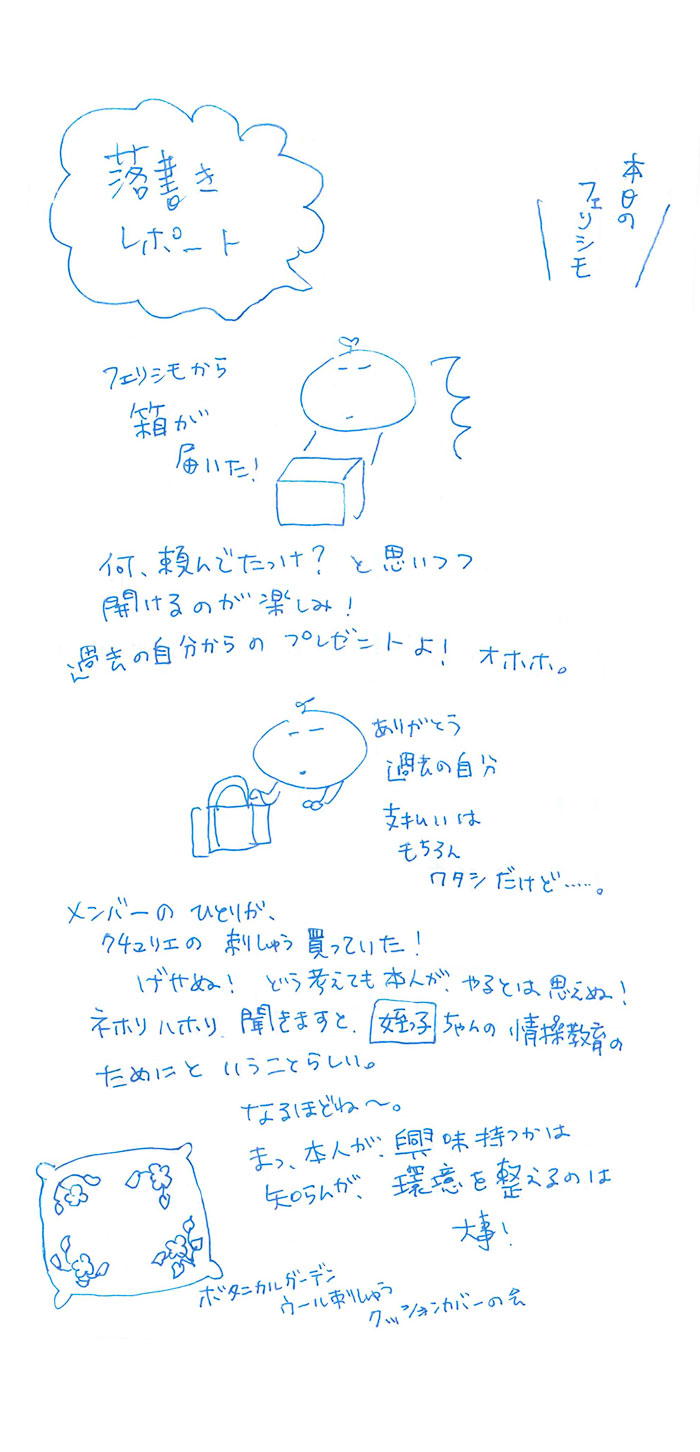 落書き
レポート
本日の
フェリシモ
フェリシモから
箱が
届いた!
何、頼んでたっけ?と思いつつ
開けるのが楽しみ!
過去の自分からのプレゼントよ! オホホ。
ありがとう
過去の自分
支払いは
もちろん
ワタシだけど……。
メンバーのひとりが、
クチュリエの刺しゅう買っていた!
げせぬ! どう考えても本人が、やるとは思えぬ!
ネホリハホリ聞きますと、姪っ子ちゃんの情操教育の
ためにということらしい。
なるほどね〜。
まっ、本人が、興味持つかは
知らんが、環境を整えるのは
大事!
ボタニカルガーデン
ウール刺しゅう
クッションカバーの会